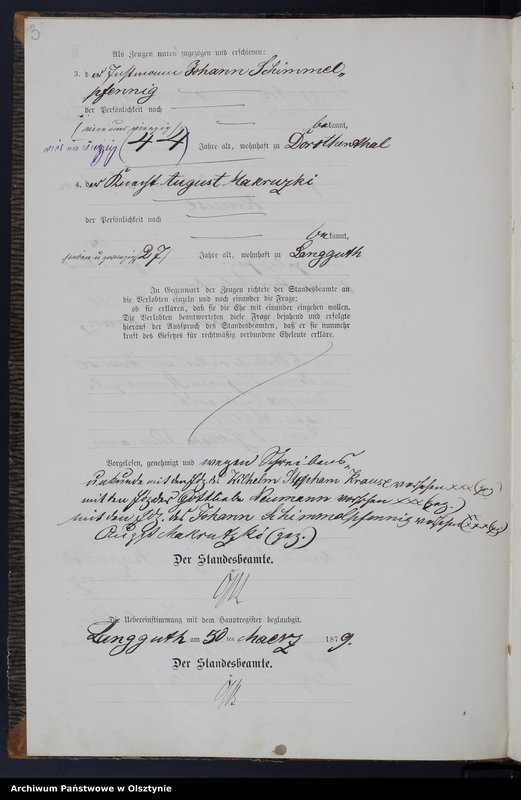 3
Als Zeugen waren zugezogen und erschienen:
3. der Instmann Johann Schimmel-
pfennig
der Persönlichkeit nach
(vier und vierzig)
bekannt,
vier und vierzig (44) Jahre alt, wohnhaft zu Dorothenthal
4. der Knecht August Makrutzki
der Persönlichkeit nach
bekannt,
sieben u zwanzig 27 Jahre alt, wohnhaft zu Langguth
In Gegenwart der Zeugen richtete der Standesbeamte an
die Verlobten einzeln und nach einander die Frage:
ob sie erklären, daß sie die Ehe mit einander eingehen wollen.
Die Verlobten beantworteten diese Frage bejahend und erfolgte
hierauf der Ausspruch des Standesbeamten, daß er sie nunmehr
kraft des Gesetzes für rechtmäßig verbundene Eheleute erkläre.
Vorgelesen, genehmigt und wegen Schreibens-
unkunde mit den Hdz. des Wilhelm Krause versehen xxx (gez)
mit den Hdz der Gottliebe Neumann versehen xxx (gez.)
mit den Hdz. des Johann Schimmelpfennig versehen xxx (gez)
August Makrutzki (gez.)
Der Standesbeamte.
Die Uebereinstimmung mit dem Hauptregister beglaubigt.
Langguth am 30 ten Maerz 1879.
Der Standesbeamte.
Archiwum Państwowe w Olsztynie